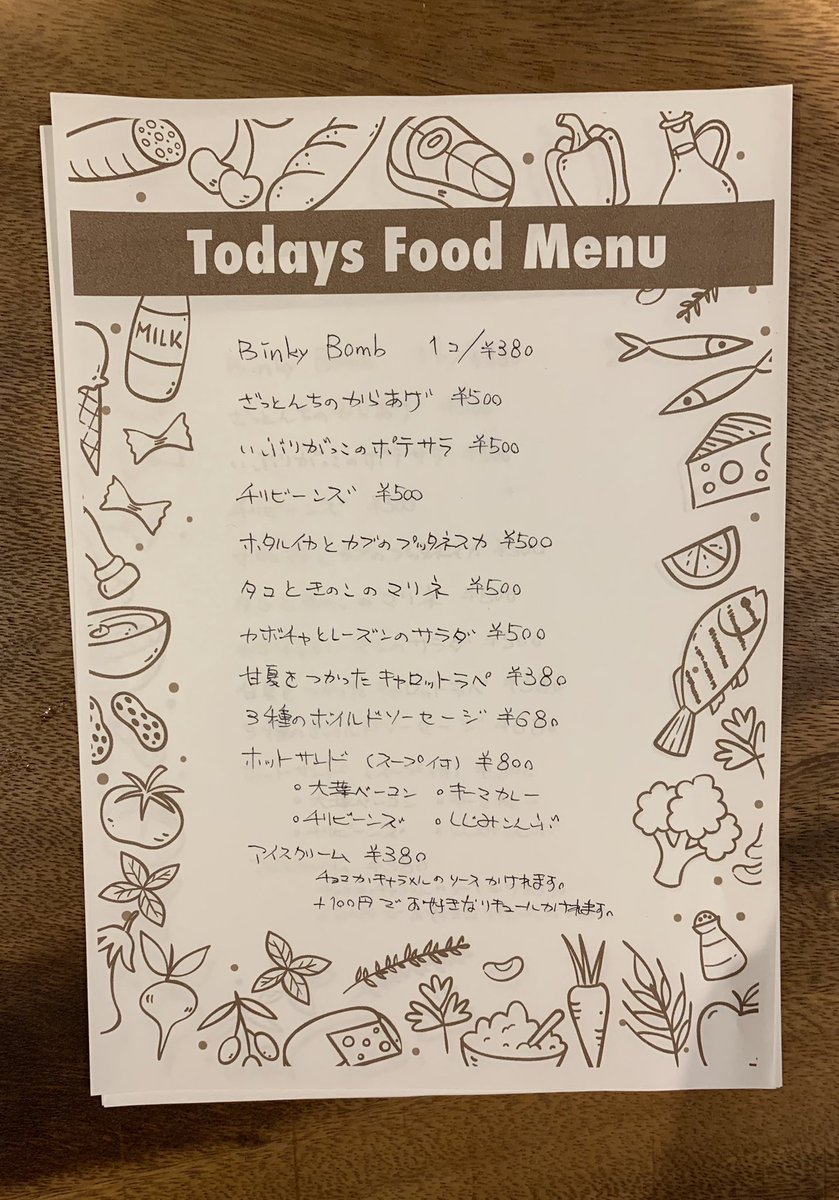 Todays Food Menu
MILK
Binky Bomb 1コ/¥380
ざっとんちのからあげ ¥500
いぶりがっこのポテサラ ¥500
チリビーンズ ¥500
ホタルイカとカブのプッタネスカ ¥500
タコときのこのマリネ ¥500
カボチャとレーズンのサラダ ¥500
甘夏をつかったキャロットラペ ¥380
3種のボイルドソーセージ ¥680
ホットサンド (スープ付) ¥800
○大葉ベーコン ○キーマカレー
○チリビーンズ ○しじみこんぶ
アイスクリーム ¥380
チョコかキャラメルのソースかけれます。
+100円でお好きなリキュールかけれます。